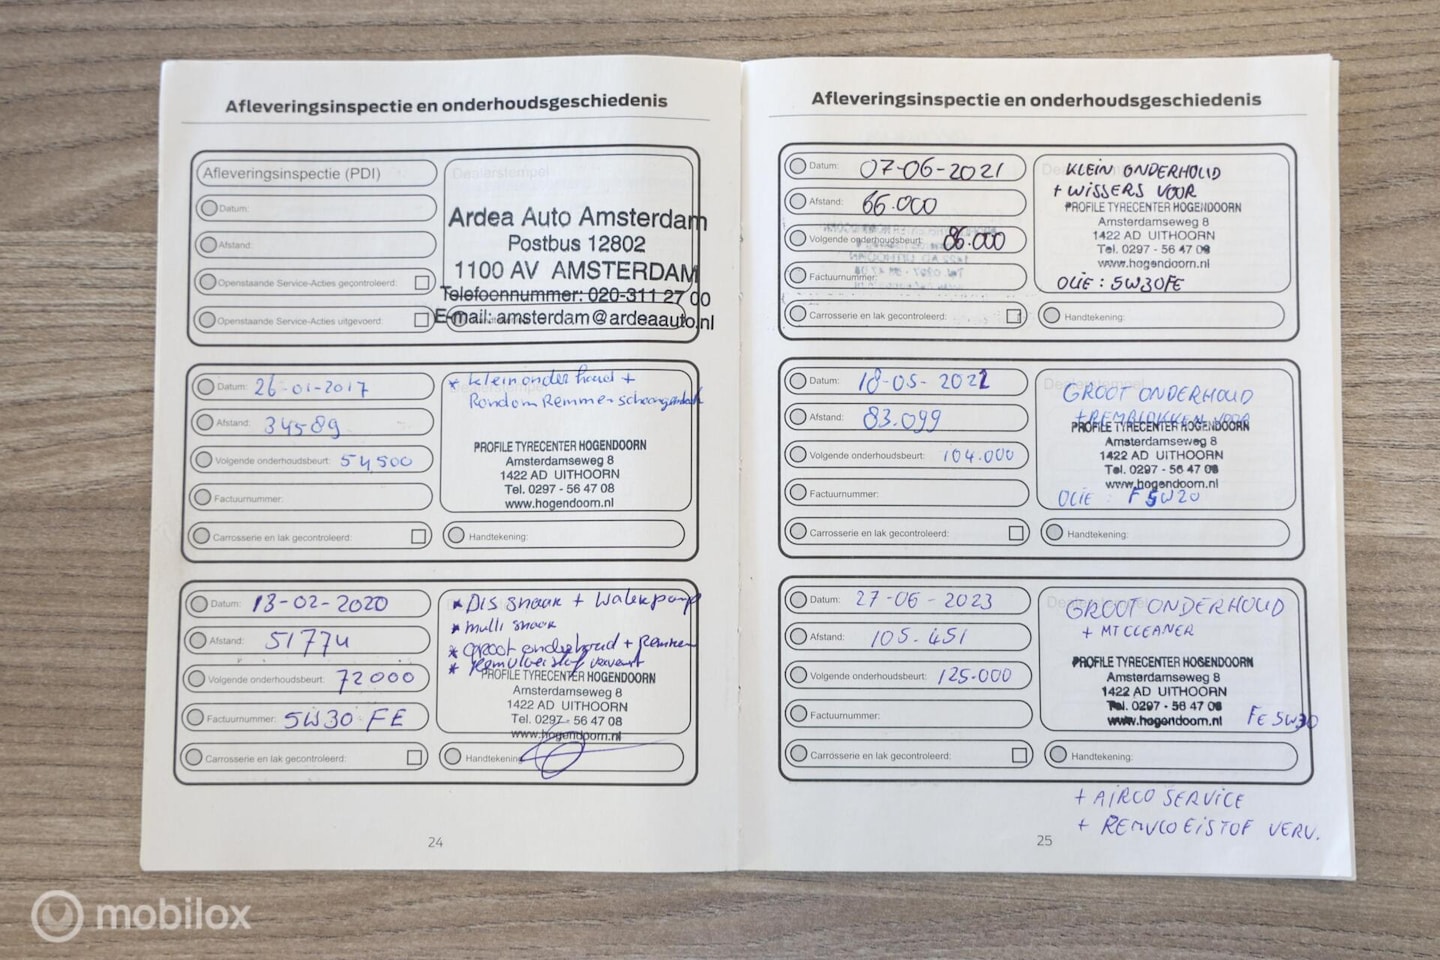 Afleveringsinspectie en onderhoudsgeschiedenis
Afleveringsinspectie (PDI)
Datum:
Afstand:
Openstaande Service-Acties gecontroleerd:
Openstaande Service-Acties uitgevoerd:
Dealerstempel
Ardea Auto Amsterdam
Postbus 12802
1100 AV AMSTERDAM
Telefoonnummer: 020-311 27 00
E-mail: amsterdam@ardeaauto.nl
Datum: 26-01-2017
Afstand: 34589
Volgende onderhoudsbeurt: 54,500
Factuurnummer:
Carrosserie en lak gecontroleerd:
* Kleinonderhoud +
Rondom Remmen
PROFILE TYRECENTER HOGENDOORN
Amsterdamseweg 8
1422 AD UITHOORN
Tel. 0297 - 56 47 08
www.hogendoorn.nl
Handtekening:
Datum: 13-02-2020
Afstand: 51774
Volgende onderhoudsbeurt: 72000
Factuurnummer: 5W30 FE
Carrosserie en lak gecontroleerd:
* Dis snaar + Waterpomp
* multi snaar
* Groot onderhoud + Remmen
* Remvloeistof ververst
PROFILE TYRECENTER HOGENDOORN
Amsterdamseweg 8
1422 AD UITHOORN
Tel. 0297 - 56 47 08
www.hogendoorn.nl
Handtekening:
24
Afleveringsinspectie en onderhoudsgeschiedenis
Datum: 07-06-2021
Afstand: 66.000
Volgende onderhoudsbeurt: 86.000
Factuurnummer:
Carrosserie en lak gecontroleerd:
KLEIN ONDERHOUD
+ WISSERS VOOR
PROFILE TYRECENTER HOGENDOORN
Amsterdamseweg 8
1422 AD UITHOORN
Tel. 0297 - 56 47 08
www.hogendoorn.nl
OLIE : 5W30FE
Handtekening:
Datum: 18-05-2022
Afstand: 83.099
Volgende onderhoudsbeurt: 104.000
Factuurnummer:
Carrosserie en lak gecontroleerd:
Dealerstempel
GROOT ONDERHOUD
+ REMBLOKKEN VOOR
PROFILE TYRECENTER HOGENDOORN
Amsterdamseweg 8
1422 AD UITHOORN
Tel. 0297 - 56 47 08
www.hogendoorn.nl
OLIE : F 5W20
Handtekening:
Datum: 27-06-2023
Afstand: 105.451
Volgende onderhoudsbeurt: 125.000
Factuurnummer:
Carrosserie en lak gecontroleerd:
GROOT ONDERHOUD
+ MT CLEANER
PROFILE TYRECENTER HOGENDOORN
Amsterdamseweg 8
1422 AD UITHOORN
Tel. 0297 - 56 47 08
www.hogendoorn.nl
FE 5W30
Handtekening:
+ AIRCO SERVICE
+ REMVLOEISTOF VERV.
25
mobilox